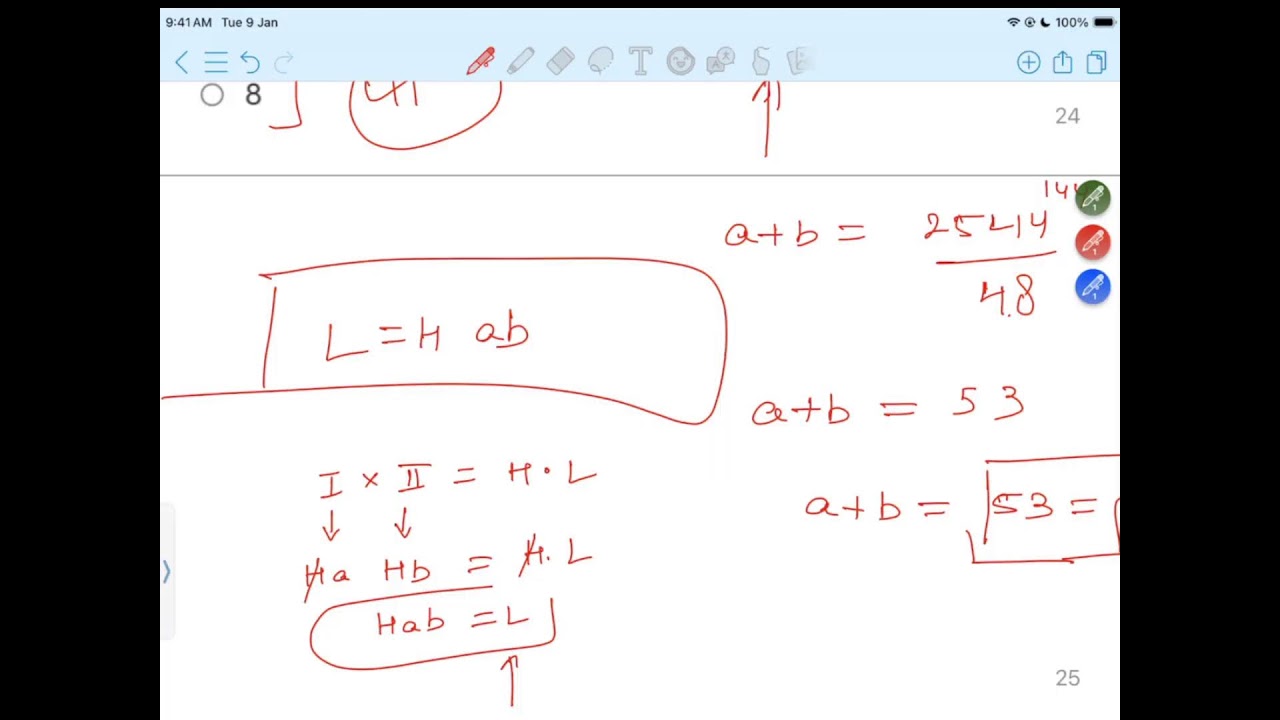 9:41 AM Tue 9 Jan 100%
8
24
a+b = 2544
4.8
L = H ab
a+b = 53
I × II = H·L
a+b = 53 =
Ha Hb = H·L
Hab = L
25